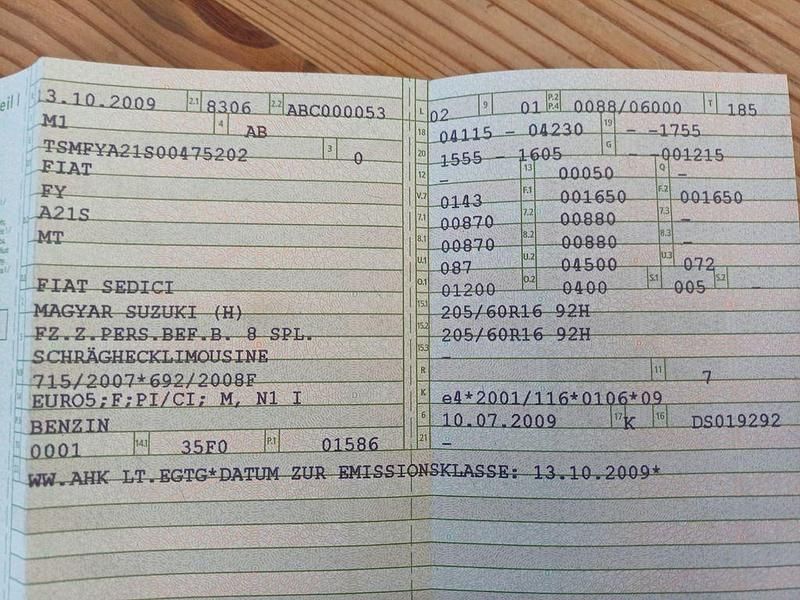 eil I
13.10.2009 2.1 8306 2.2 ABC000053
M1 4 AB
TSMFYA21S00475202 3 0
FIAT
FY
A21S
MT
FIAT SEDICI
MAGYAR SUZUKI (H)
FZ.Z.PERS.BEF.B. 8 SPL.
SCHRÄGHECKLIMOUSINE
715/2007*692/2008F
EURO5;F;PI/CI; M, N1 I
BENZIN
0001 14.1 35F0 P.1 01586
L 02 9 01 P.2 P.4 0088/06000 T 185
18 04115 - 04230 19 - -1755
20 1555 - 1605 G - -001215
12 - 13 00050 Q -
V.7 0143 F.1 001650 F.2 001650
7.1 00870 7.2 00880 7.3 -
8.1 00870 8.2 00880 8.3 -
U.1 087 U.2 04500 U.3 072
O.1 01200 O.2 0400 S.1 005 S.2 -
15.1 205/60R16 92H
15.2 205/60R16 92H
15.3 -
R 11 7
K e4*2001/116*0106*09
6 10.07.2009 17 K 16 DS019292
21 -
WW.AHK LT.EGTG*DATUM ZUR EMISSIONSKLASSE: 13.10.2009*